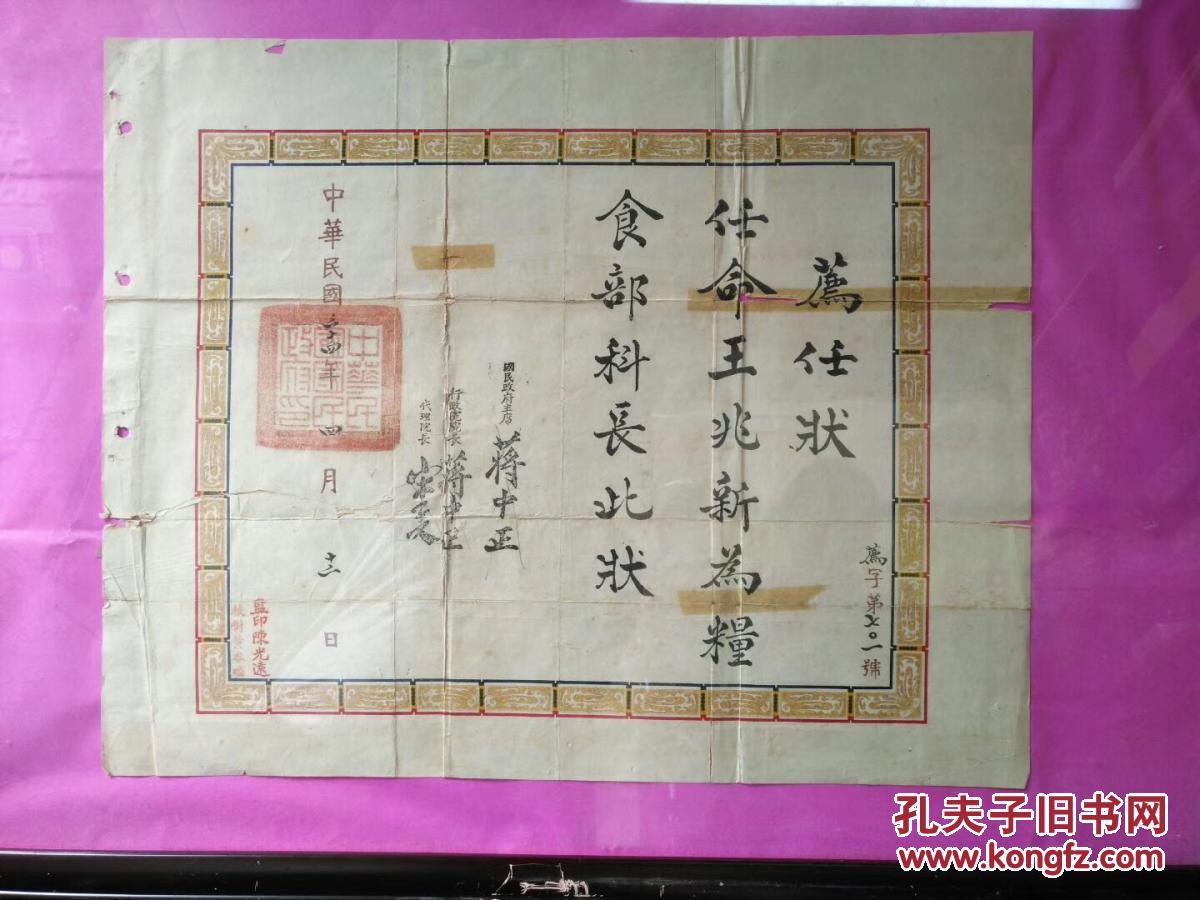 薦任狀
任命王兆新為糧
食部科長此狀
薦字第七〇一號
國民政府主席 蔣中正
行政院院長 蔣中正
代理院長 宋子文
中華民國卅四年四月十二日
監印陳光遠
孔夫子旧书网
www.kongfz.com